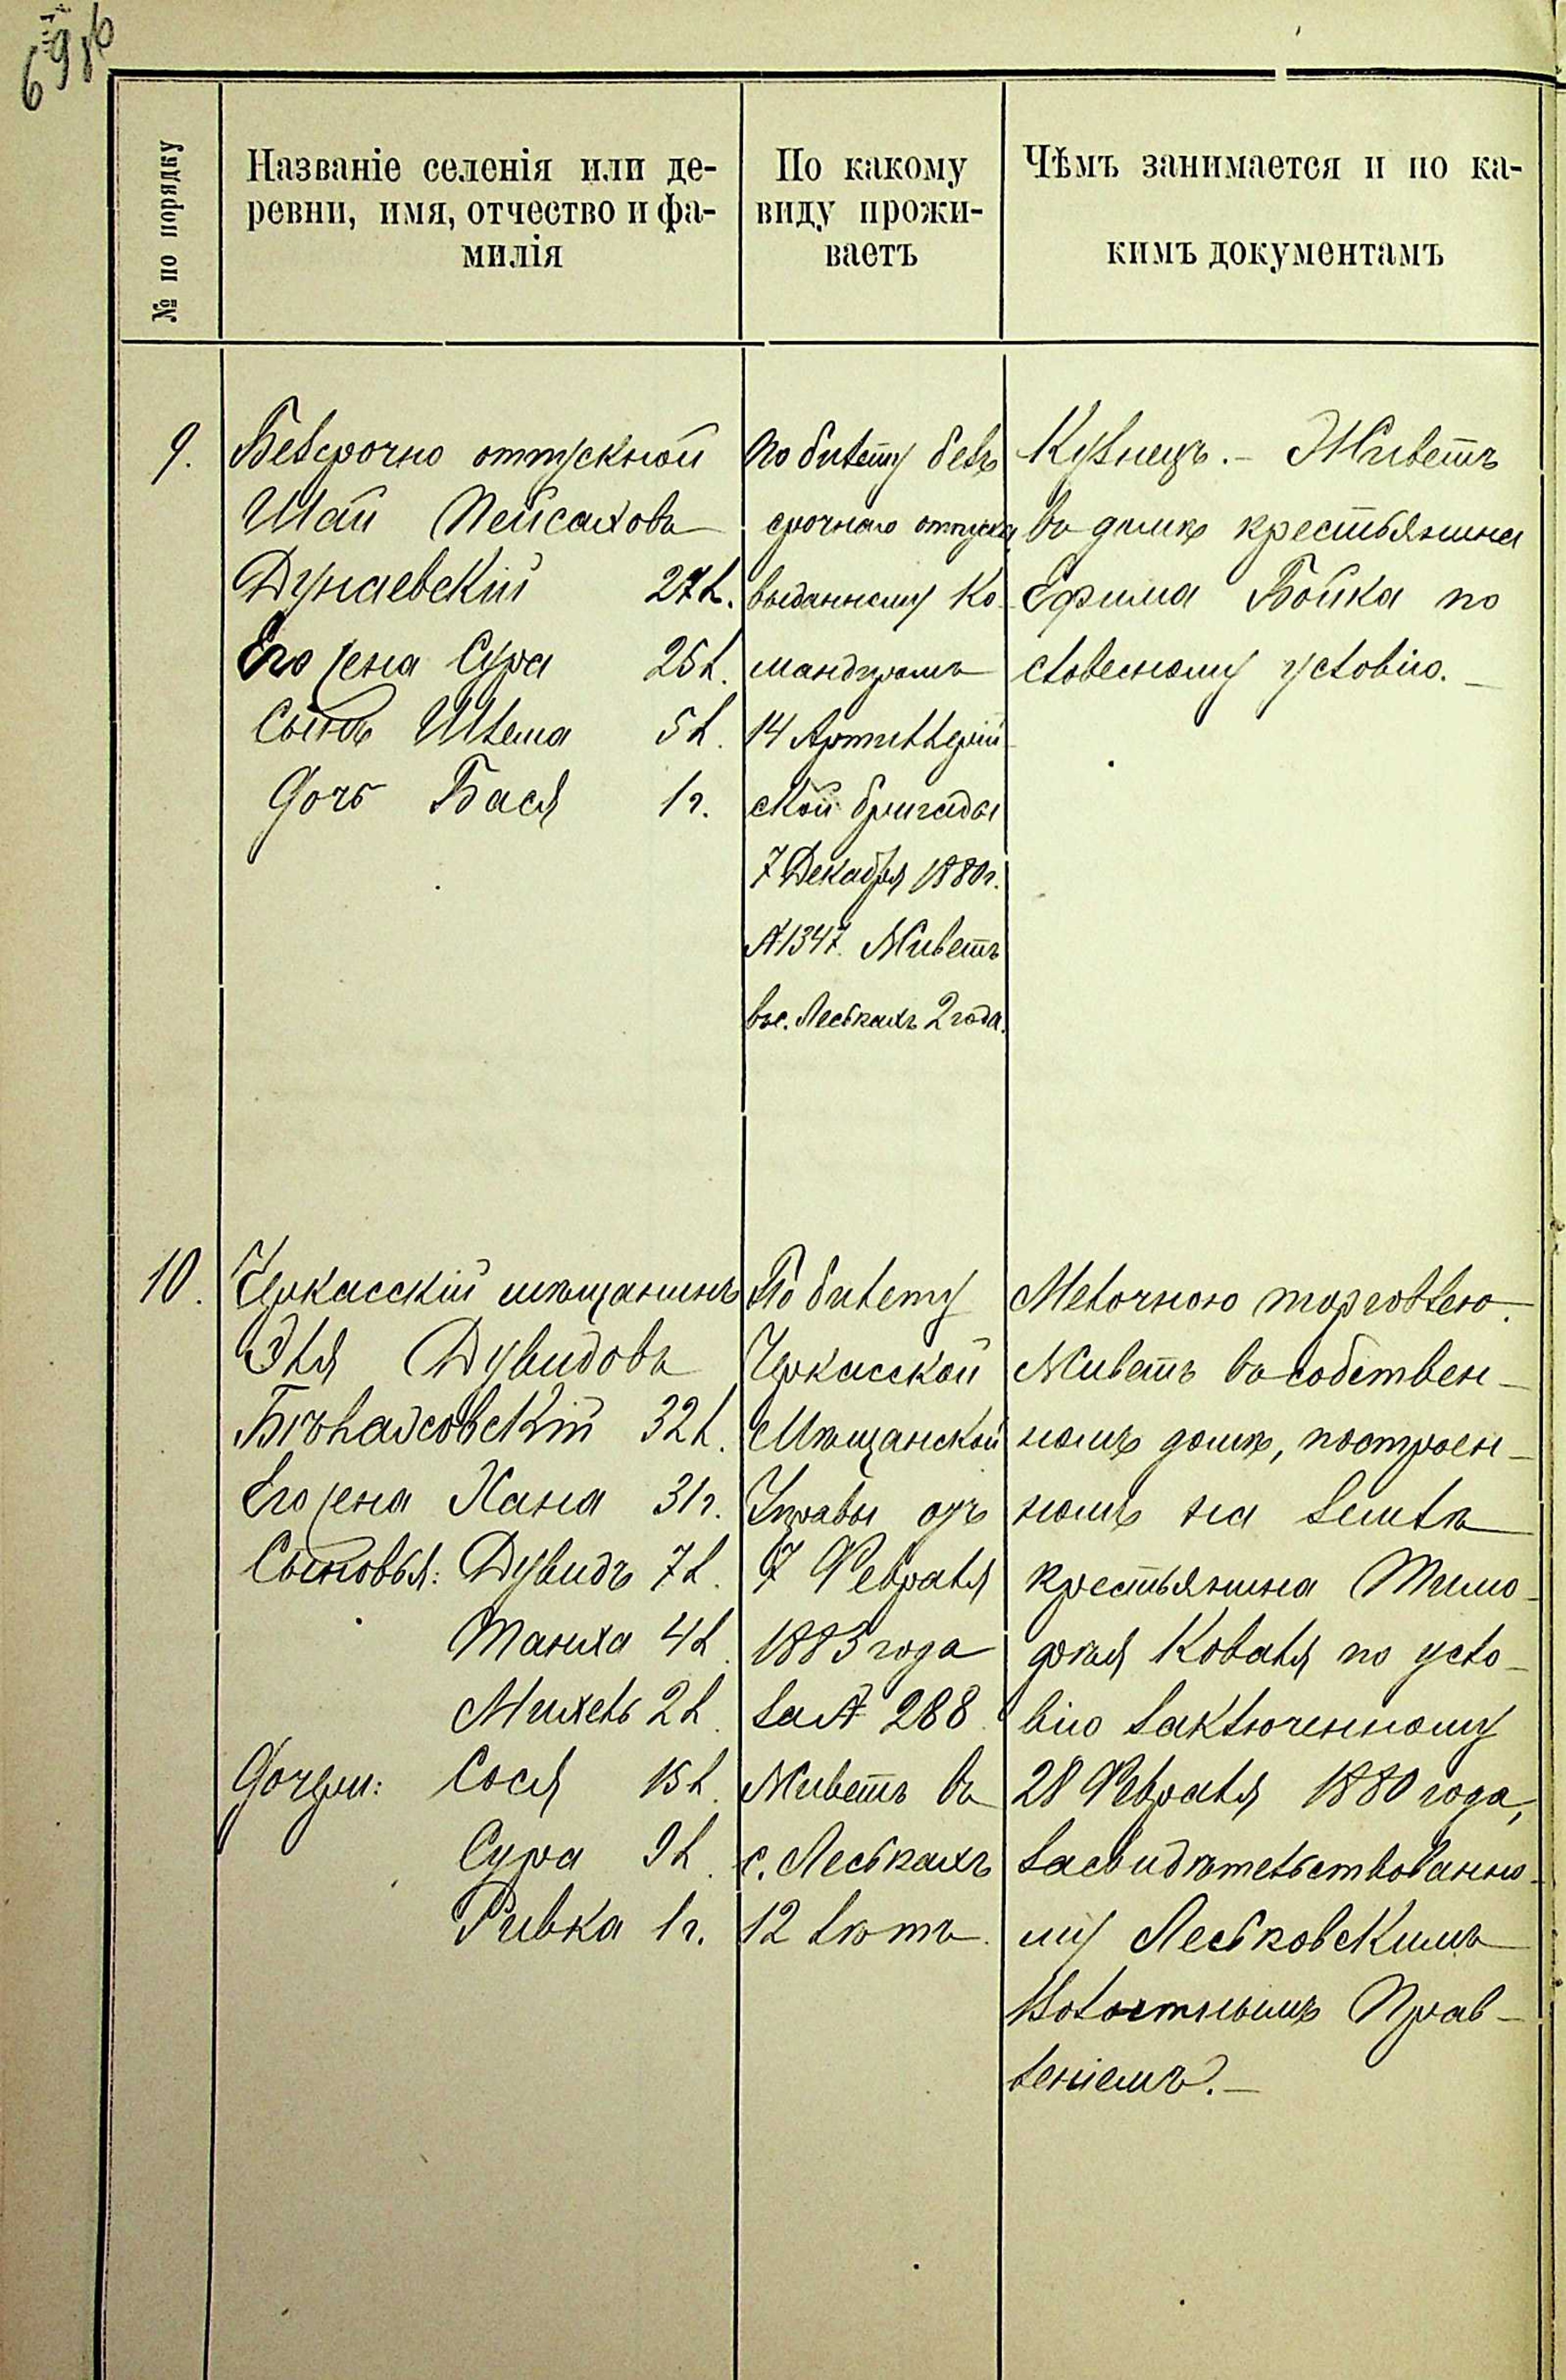 69 об
№ по порядку
Названіе селенія или де-
ревни, имя, отчество и фа-
милія
По какому
виду прожи-
ваетъ
Чѣмъ занимается и по ка-
кимъ документамъ
9.
Безсрочно отпускной
Шай Пейсаховъ
Дунаевскій 27 л.
Его жена Сура 25 л.
Сынъ Шлема 5 л.
Дочь Бася 1 г.
по билету безъ
срочнаго отпуска,
выданному Ко-
мандиромъ
14 Артиллерій-
ской бригады
7 Декабря 1880 г.
№ 1347. Живетъ
въ с. Леськахъ 2 года.
Кузнецъ. – Живетъ
въ домѣ крестьянина
Ефима Бойка по
словесному условію. –
10.
Черкасскій мѣщанинъ
Эля Дувидовъ
Бѣлазовскій 32 л.
Его жена Хана 31 г.
Сыновья: Дувидъ 7 л.
Маниха 4 л.
Михель 2 л.
Дочери: Сося 15 л.
Сура 9 л.
Ривка 1 г.
По билету
Черкасской
Мѣщанской
Управы отъ
7 Февраля
1883 года
за № 288.
Живетъ въ
с. Леськахъ
12 лѣтъ.
Мелочною торговлею.
Живетъ въ собствен-
номъ домѣ, построен-
номъ на землѣ
крестьянина Тимо-
фея Коваля по усло-
вію заключенному
28 Февраля 1880 года,
засвидѣтельствованно-
му Леськовскимъ
Волостнымъ Прав-
леніемъ. –